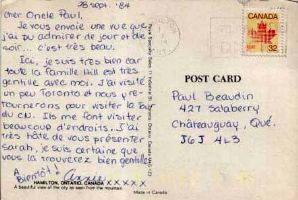 28 sept. '84
Cher Oncle Paul,
Je vous envoie une vue que
j'ai pu admirer de jour et de
soir... c'est très beau.
Ici, je suis très bien car
toute la famille Hill est très
gentille avec moi. J'ai visité
un peu Toronto et nous re-
tournerons pour visiter la tour
du CN. Ils me font visiter
beaucoup d'endroits. J'ai
très hâte de vous présenter
Sarah, je suis certaine que
vous la trouverez bien gentille.
A Bientôt! Annie xxxxx
HAMILTON, ONTARIO, CANADA
A beautiful view of the city as seen from the mountain.
CANADA
32
POST CARD
Paul Beaudin
427 Salaberry
Châteauguay, Qué.
J6J 4L3